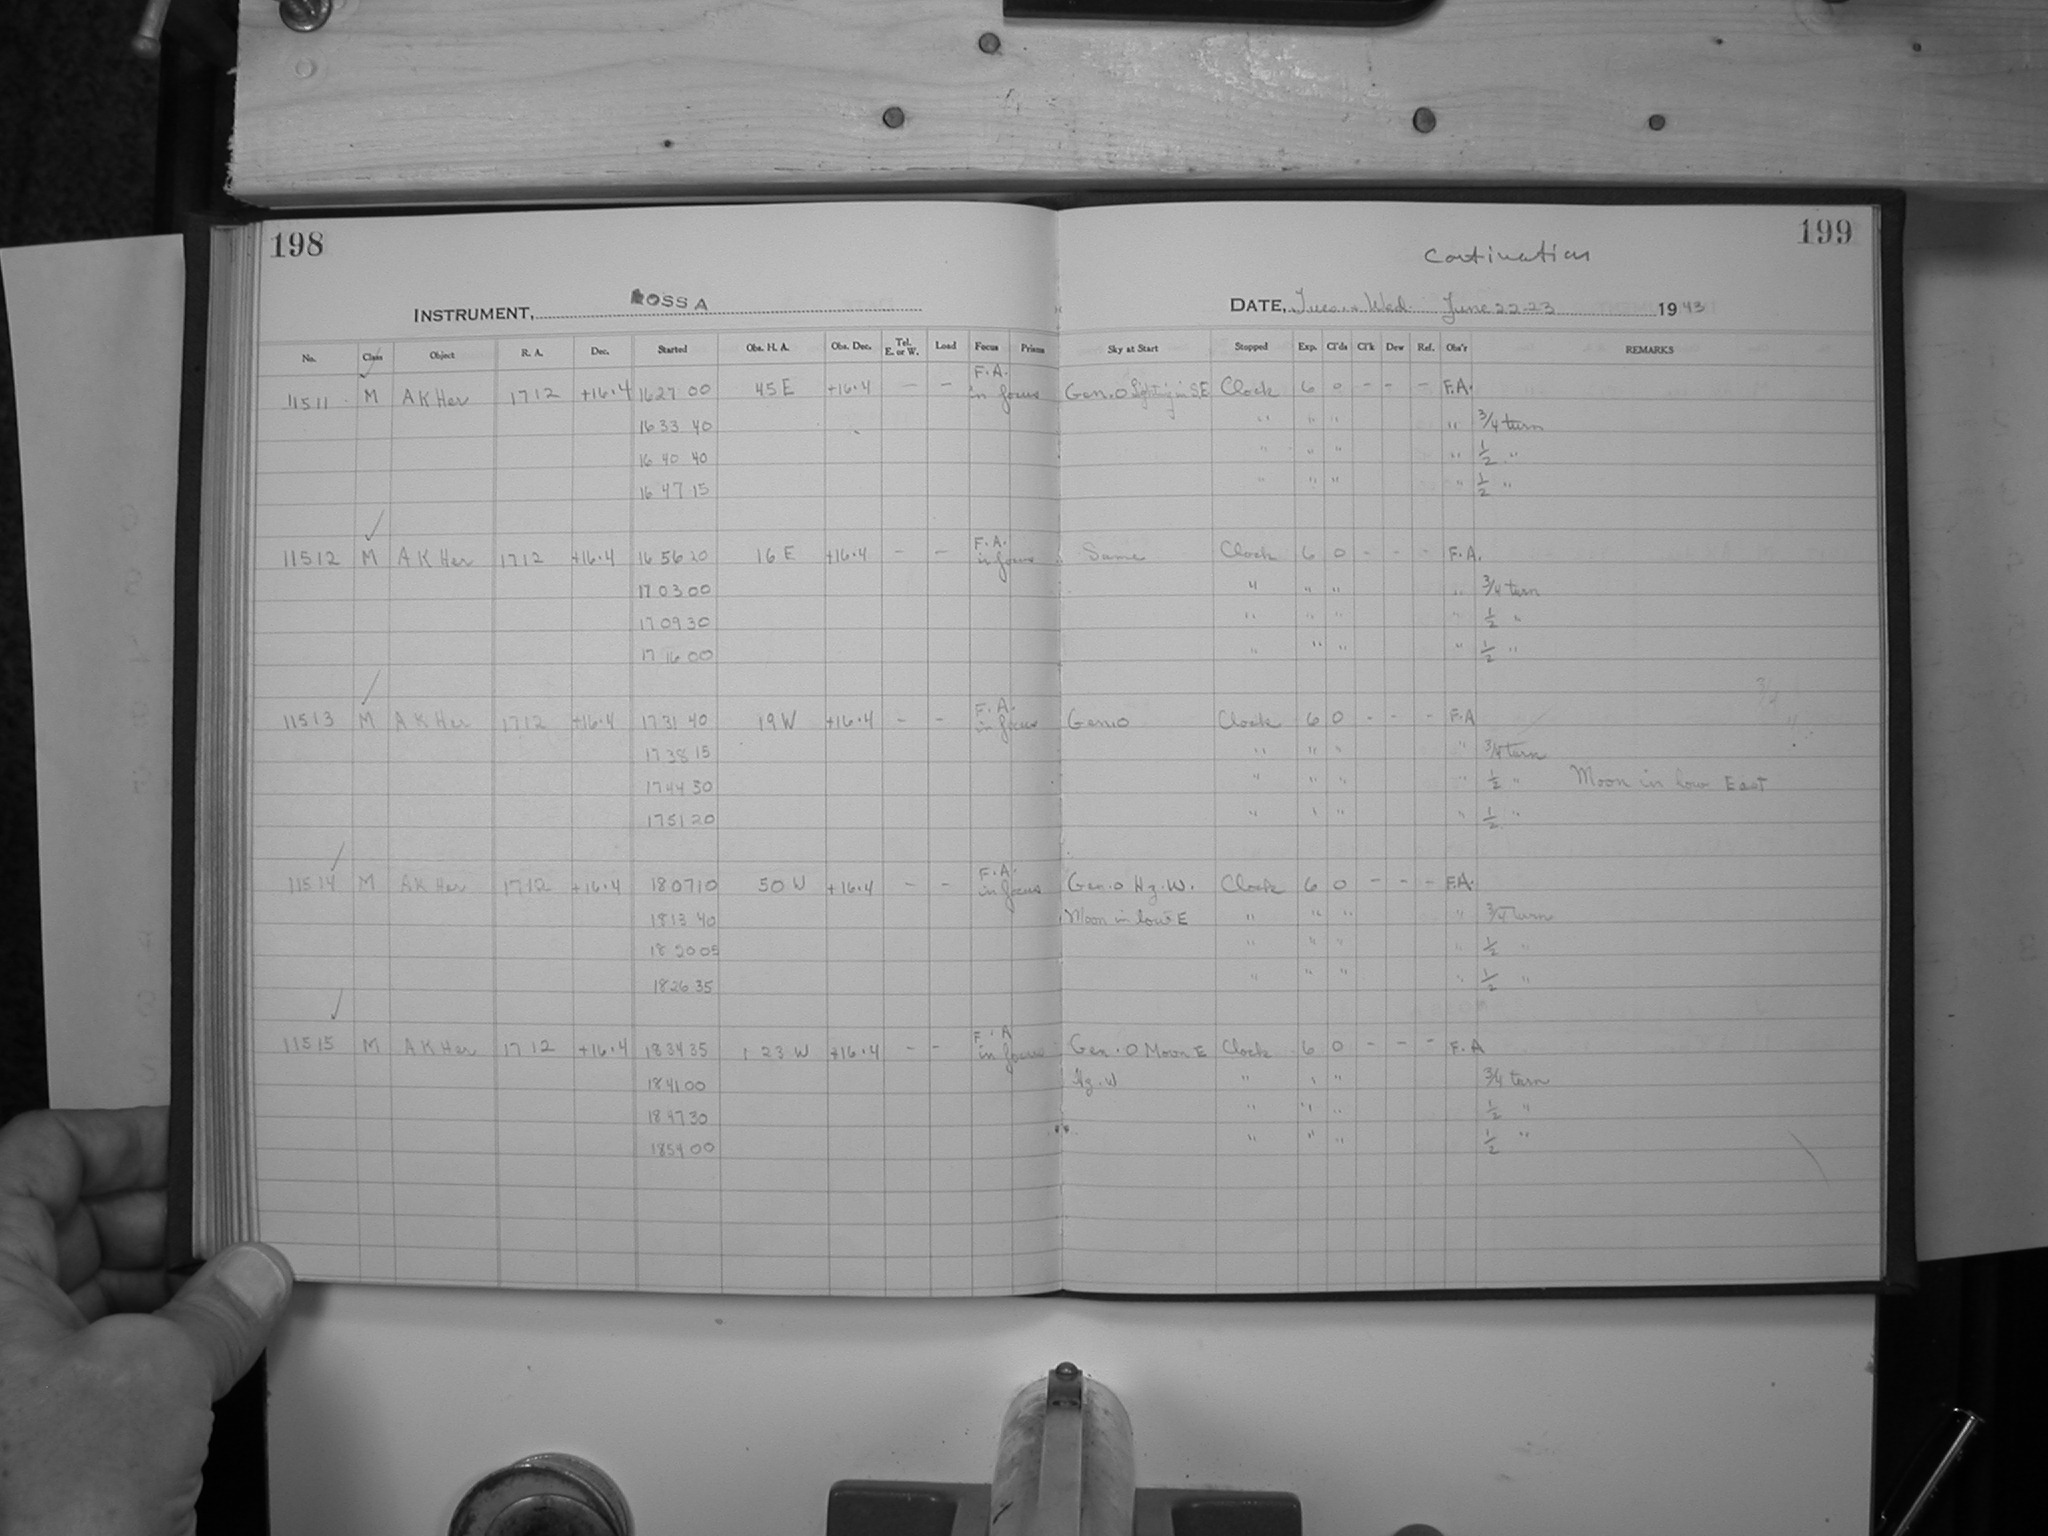 198
199
Continuation
INSTRUMENT, ROSS A
DATE, Tues. & Wed. June 22-23 1943
No. Class Object R. A. Dec. Started Obs. H. A. Obs. Dec. Tel. E. or W. Load Focus Prisms Sky at Start Stopped Exp. Cl'ds Cl'k Dew Ref. Obs'r REMARKS
11511 M AK Her 17 12 +16.4 16 27 00 45 E +16.4 – – F.A. in focus Gen. 0 Lighting in S.E Clock 6 0 – – – F.A.
16 33 40 " " " " 3/4 turn
16 40 40 " " " " 1/2 "
16 47 15 " " " " 1/2 "
11512 M AK Her 17 12 +16.4 16 56 20 16 E +16.4 – – F.A. in focus Same Clock 6 0 – – – F.A.
17 03 00 " " " " 3/4 turn
17 09 30 " " " " 1/2 "
17 16 00 " " " " 1/2 "
11513 M AK Her 17 12 +16.4 17 31 40 19 W +16.4 – – F.A. in focus Gen. 0 Clock 6 0 – – – F.A
17 38 15 " " " " 3/4 turn
17 44 30 " " " " 1/2 " Moon in low East
17 51 20 " " " " 1/2 "
11514 M AK Her 17 12 +16.4 18 07 10 50 W +16.4 – – F.A. in focus Gen. 0 Hz. W. Clock 6 0 – – – F.A.
18 13 40 Moon in low E " " " " 3/4 turn
18 20 05 " " " " 1/2 "
18 26 35 " " " " 1/2 "
11515 M AK Her 17 12 +16.4 18 34 35 1 23 W +16.4 – – F.A in focus Gen. 0 Moon E Clock 6 0 – – – F.A
18 41 00 Hz. W " " " 3/4 turn
18 47 30 " " " 1/2 "
18 54 00 " " " 1/2 "